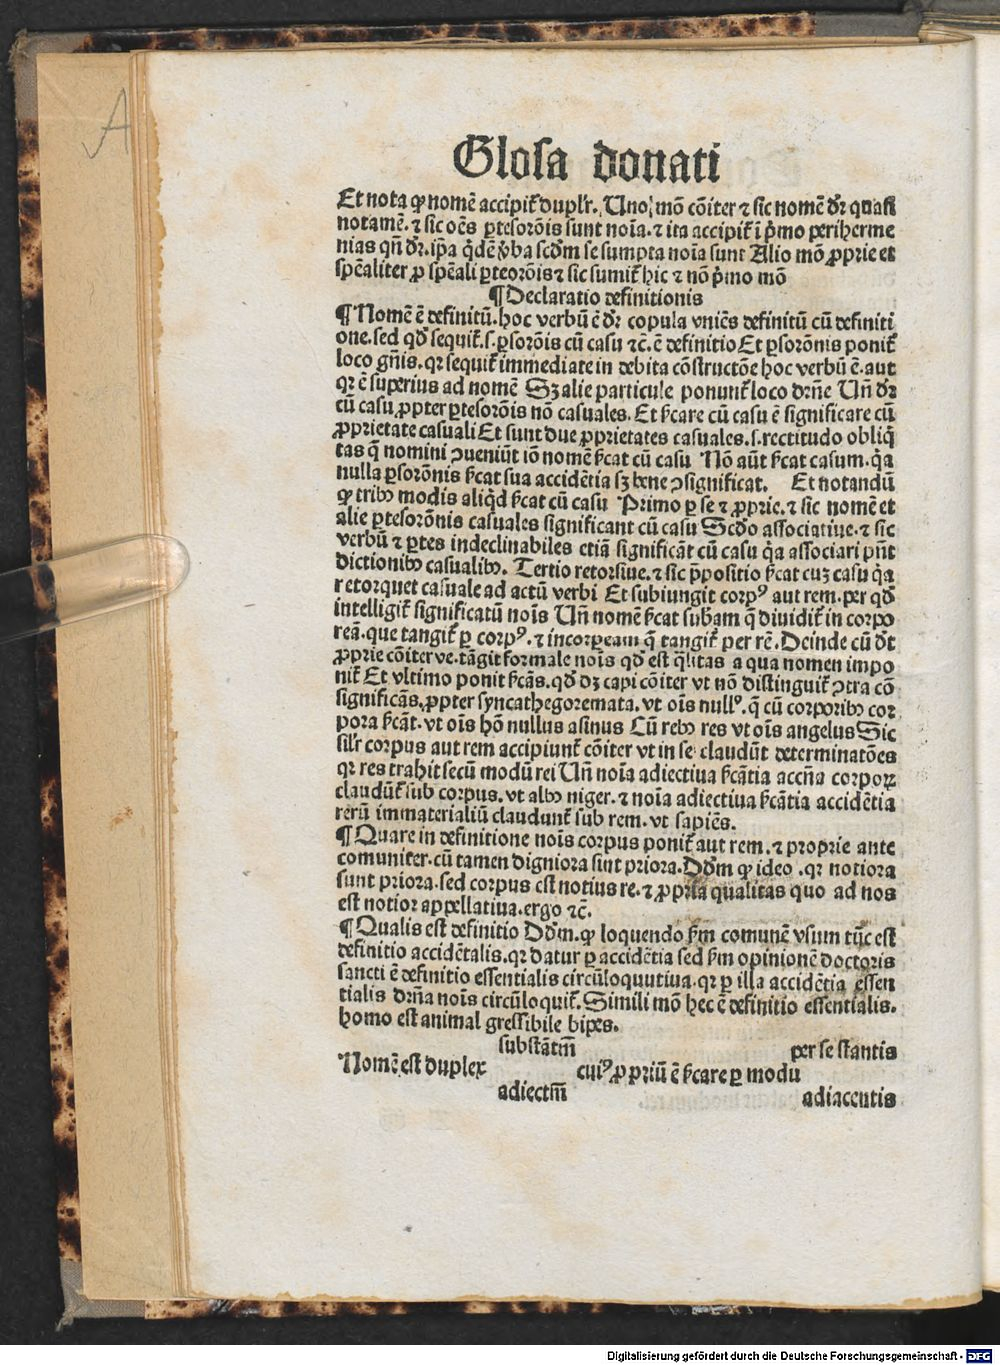 A
Glosa donati
Et nota ꝙ nomē accipit̃ duplr̃. Uno mō cōiter ⁊ sic nomē dr̃ quasi
notamē. ⁊ sic oēs ꝑtesorōis sunt noīa. ⁊ ita accipit̃ ī p̄mo periherme
nias qn̄ dr̃. ip̄a q̄dē ꝟba scd̄m se sumpta noīa sunt Alio mō ꝓprie et
spēaliter ꝓ spēali ꝑteorōis ⁊ sic sumit̃ hic ⁊ nō p̄mo mō
¶ Declaratio definitionis
¶ Nomē ē definitū. hoc verbū ē dr̃ copula vniēs definitū cū definiti
one. sed qd̄ sequit̃. s. ꝑsorōis cū casu ⁊c̄. ē definitio Et ꝑsorōnis ponit̃
loco gn̄is. qr sequit̃ immediate in debita cōstructōe hoc verbū ē. aut
qr ē superius ad nomē Sꝫ alie particule ponunt̃ loco dr̄ne Un̄ dr̃
cū casu ꝓpter ꝑtesorōis nō casuales. Et ẜcare cū casu ē significare cū
ꝓprietate casuali Et sunt due ꝓprietates casuales. s. rectitudo obliq̄
tas q̄ nomini ꝯueniūt iō nomē ẜcat cū casu Nō aūt ẜcat casum. q̄a
nulla ꝑsorōnis ẜcat sua accidētia sꝫ bene ꝯsignificat. Et notandū
ꝙ tribꝰ modis aliq̄d ẜcat cū casu Primo ꝑ se ⁊ ꝓprie. ⁊ sic nomē et
alie ꝑtesorōnis casuales significant cū casu Scd̄o associatiue. ⁊ sic
verbū ⁊ ꝑtes indeclinabiles etiā significāt cū casu q̄a associari pn̄t
dictionibꝰ casualibꝰ. Tertio retorsiue. ⁊ sic p̄positio ẜcat cuꝫ casu q̄a
retorquet casuale ad actū verbi Et subiungit corpꝰ aut rem. per qd̄
intelligit̃ significatū noīs Un̄ nomē ẜcat sub̄am q̄ diuidit̃ in corpo
reā. que tangit̃ ꝑ corpꝰ. ⁊ incorꝑeam q̄ tangit̃ per rē. Deinde cū dr̃
ꝓprie cōiter ve. tāgit formale noīs qd̄ est q̄litas a qua nomen impo
nit̃ Et vltimo ponit ẜcās. qd̄ dꝫ capi cōiter vt nō distinguit̃ ꝯtra cō
significās. ꝓpter syncathegoremata. vt oīs nullꝰ. q̄ cū corporibꝰ cor
pora ẜcāt. vt oīs hō nullus asinus Cū rebꝰ res vt oīs angelus Sic
silr̃ corpus aut rem accipiunt̃ cōiter vt in se claudūt determinatōes
qr res trahit secū modū rei Un̄ noīa adiectiua ẜcātia accn̄a corporꝝ
claudūt̃ sub corpus. vt albꝰ niger. ⁊ noīa adiectiua ẜcātia accidētia
rerū immaterialiū claudunt̃ sub rem. vt sapiēs.
¶ Quare in definitione noīs corpus ponit̃ aut rem. ⁊ proprie ante
comuniter. cū tamen digniora sint priora. Dd̄m ꝙ ideo. qr notiora
sunt priora. sed corpus est notius re. ⁊ ꝓpria qualitas quo ad nos
est notior appellatiua. ergo ⁊c̄.
¶ Qualis est definitio Dd̄m. ꝙ loquendo ẜm comunē vsum tūc est
definitio accidētalis. qr datur ꝑ accidētia sed ẜm opinionē doctoris
sancti ē definitio essentialis circūloquutiua. qr ꝑ illa accidētia essen
tialis dr̄na noīs circūloquit̃. Simili mō hec ē definitio essentialis.
homo est animal gressibile bipes.
substātm̄ per se stantis
Nomē est duplex cuiꝰ ꝓpriū ē ẜcare ꝑ modū
adiectm̄ adiacentis
Digitalisierung gefördert durch die Deutsche Forschungsgemeinschaft - DFG